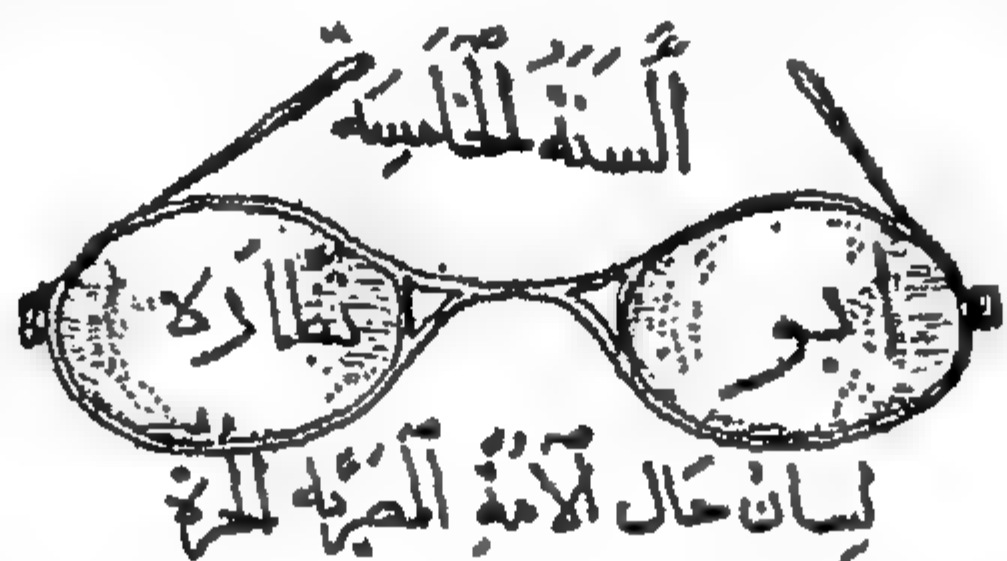 السَّنَةُ الْخَامِسَةُ
ابو نظاره
لِسَانُ حَالِ الْأُمَّةِ الْمِصْرِيَّةِ الْحُرَّةِ